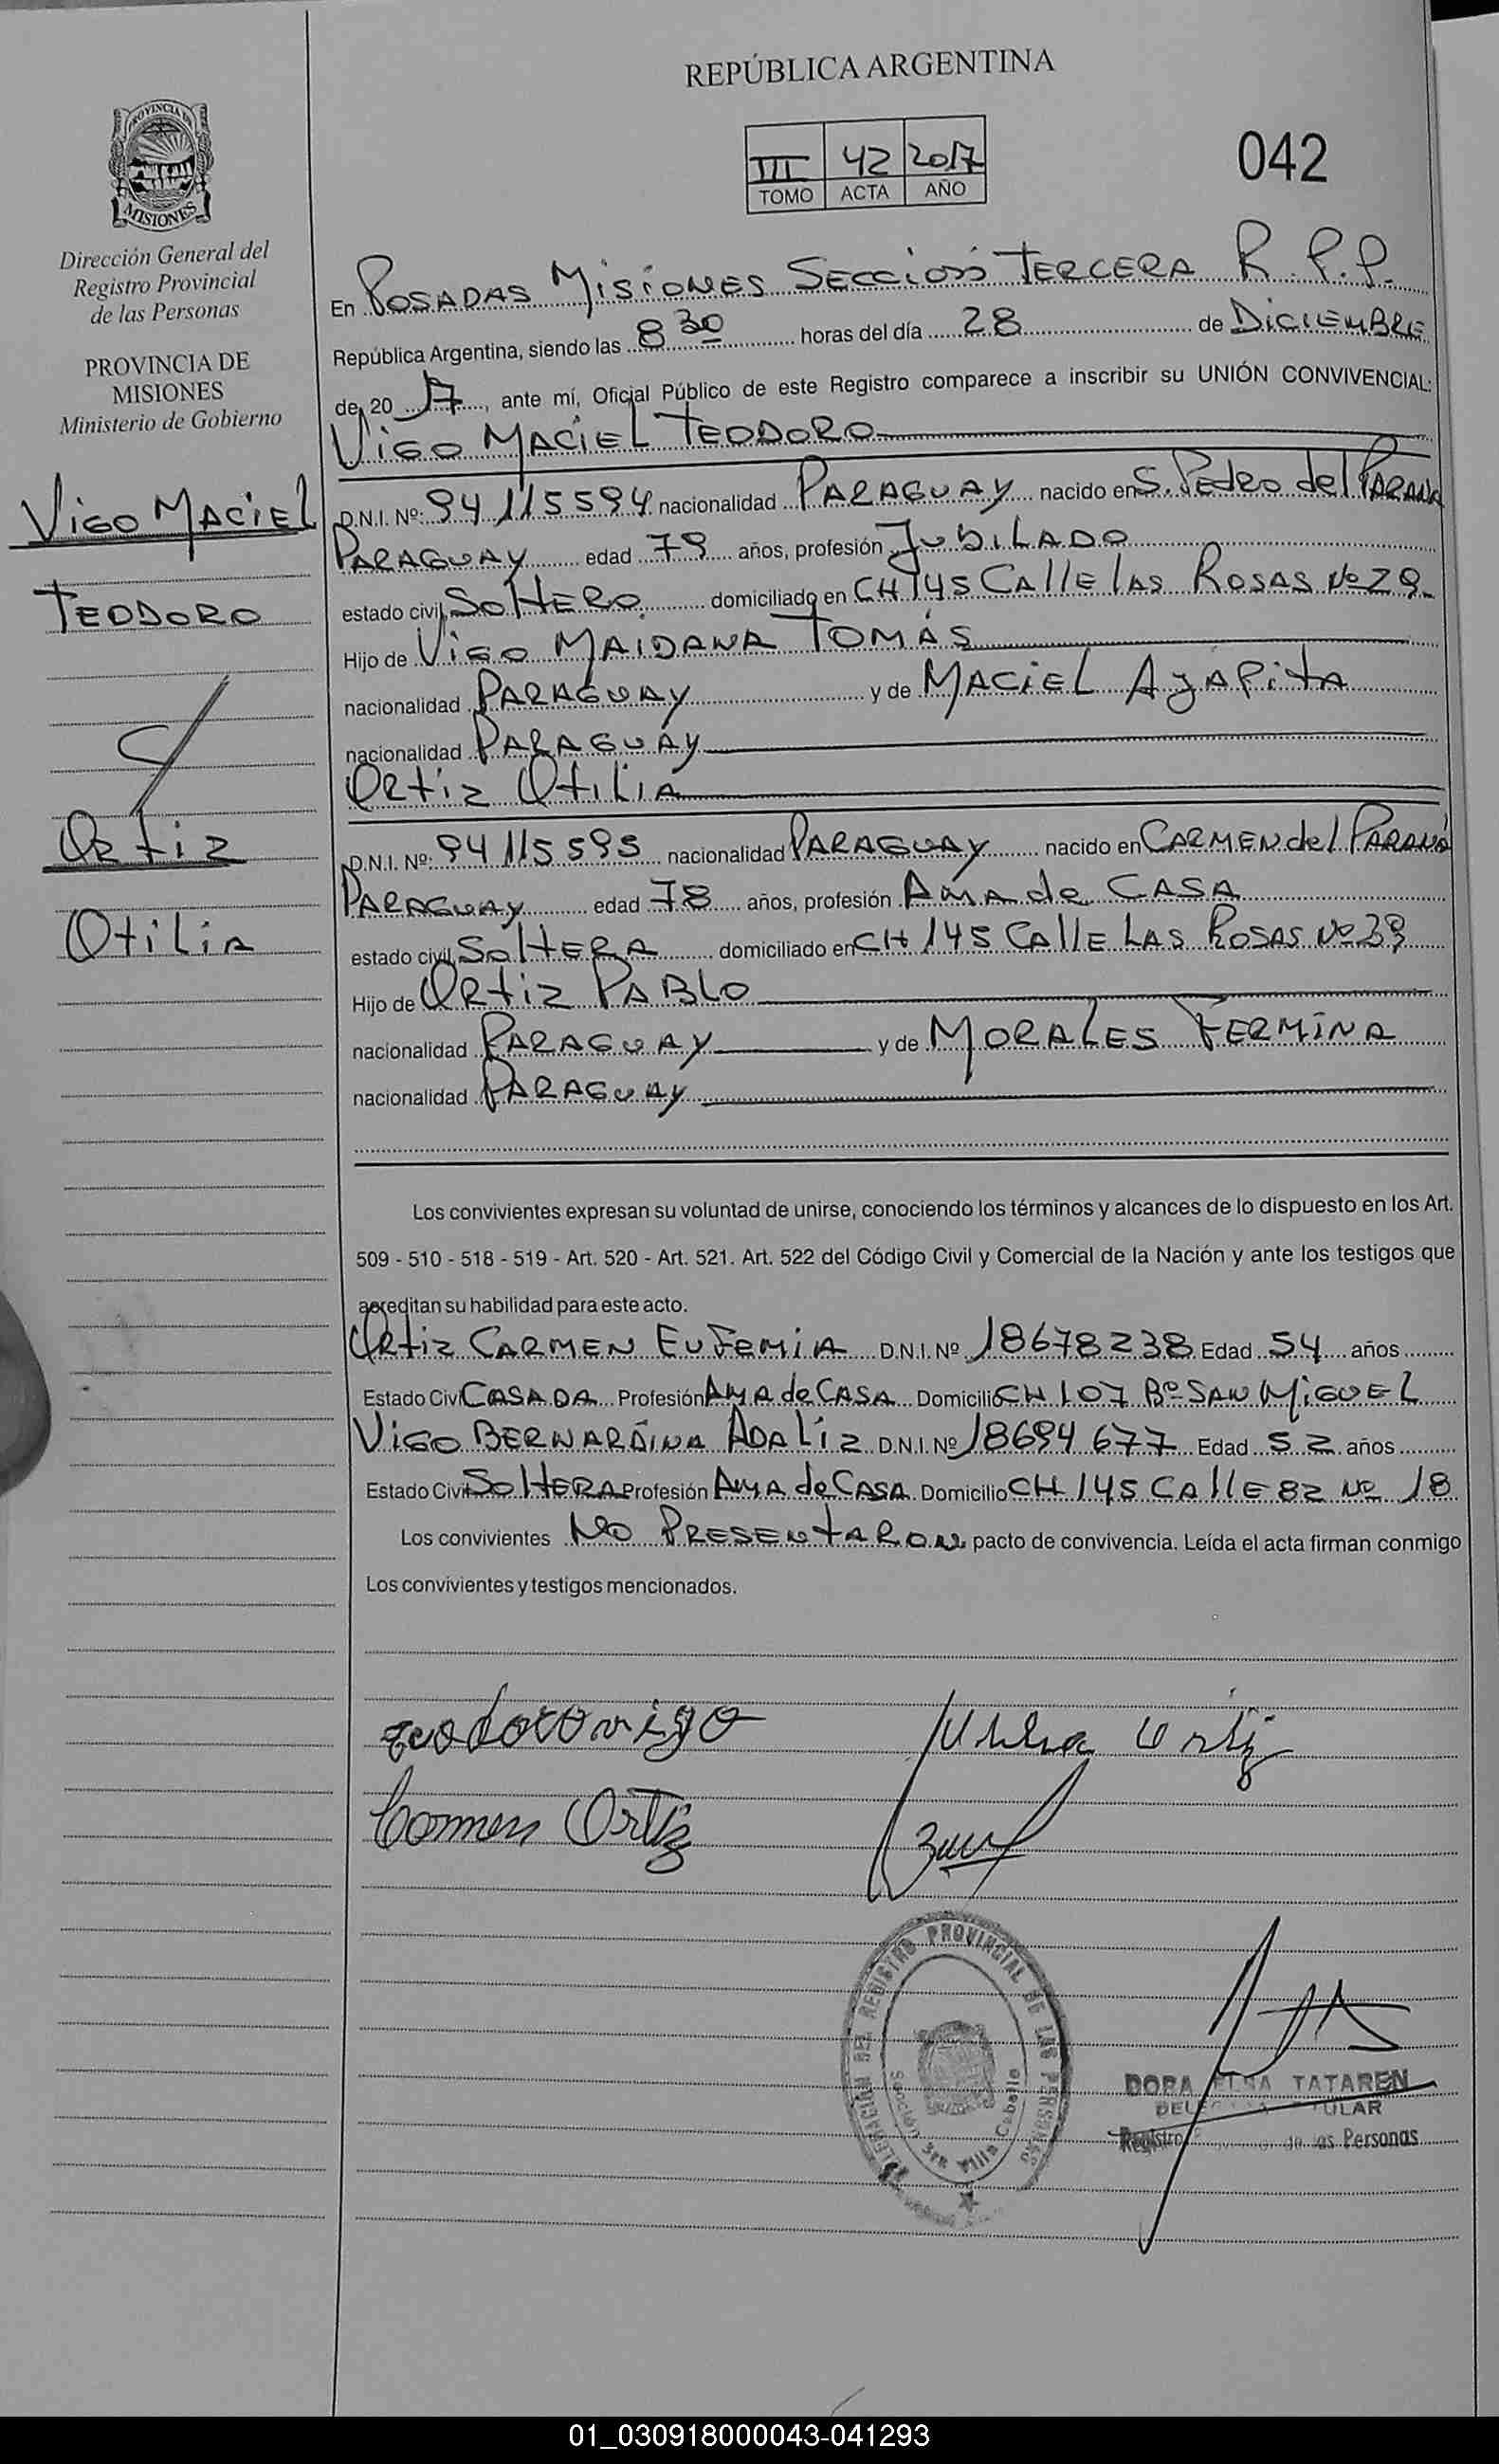 REPÚBLICA ARGENTINA
III 42 2017
TOMO ACTA AÑO
042
PROVINCIA DE
MISIONES
Dirección General del
Registro Provincial
de las Personas
PROVINCIA DE
MISIONES
Ministerio de Gobierno
VIGO MACIEL
TEODORO
C/
ORTIZ
OTILIA
En POSADAS MISIONES SECCIÓN TERCERA R.P.P.
República Argentina, siendo las 8 30 horas del día 28 de DICIEMBRE
de 20 17, ante mí, Oficial Público de este Registro comparece a inscribir su UNIÓN CONVIVENCIAL:
VIGO MACIEL TEODORO
D.N.I. Nº: 94 115594 nacionalidad PARAGUAY nacido en S. PEDRO del PARANA
PARAGUAY edad 79 años, profesión JUBILADO
estado civil SOLTERO domiciliado en CH 145 CALLE LAS ROSAS Nº 29
Hijo de VIGO MAIDANA TOMÁS
nacionalidad PARAGUAY y de MACIEL AGAPITA
nacionalidad PARAGUAY
ORTIZ OTILIA
D.N.I. Nº: 94 115595 nacionalidad PARAGUAY nacido en CARMEN del PARANÁ
PARAGUAY edad 78 años, profesión AMA de CASA
estado civil SOLTERA domiciliado en CH 145 CALLE LAS ROSAS Nº 39
Hijo de ORTIZ PABLO
nacionalidad PARAGUAY y de MORALES FERMINA
nacionalidad PARAGUAY
Los convivientes expresan su voluntad de unirse, conociendo los términos y alcances de lo dispuesto en los Art.
509 - 510 - 518 - 519 - Art. 520 - Art. 521. Art. 522 del Código Civil y Comercial de la Nación y ante los testigos que
acreditan su habilidad para este acto.
ORTIZ CARMEN EUFEMIA D.N.I. Nº 18678238 Edad 54 años
Estado Civil CASADA Profesión AMA de CASA Domicilio CH 107 Bº SAN MIGUEL
VIGO BERNARDINA ADALIZ D.N.I. Nº 18694677 Edad 52 años
Estado Civil SOLTERA Profesión AMA de CASA Domicilio CH 145 CALLE 82 Nº 18
Los convivientes NO PRESENTARON pacto de convivencia. Leída el acta firman conmigo
Los convivientes y testigos mencionados.
teodoro vigo
Ortiz
Carmen Ortiz
DELEGACION DEL REGISTRO PROVINCIAL DE LAS PERSONAS
Sección 3ra Villa Cabello
DORA ELSA TATAREN
DELEGADA TITULAR
Registro Provincial de las Personas
01_030918000043-041293